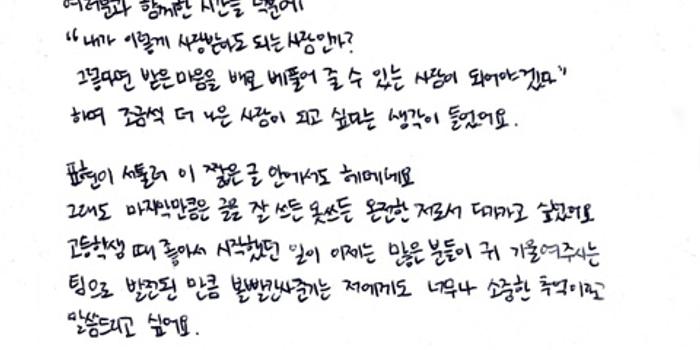 여러분과 함께한 시간들 덕분에
“내가 이렇게 사랑받아도 되는 사람인가?
그렇다면 받은 마음을 배로 베풀어 줄 수 있는 사람이 되어야겠다”
하며 조금씩 더 나은 사람이 되고 싶다는 생각이 들었어요.
표현이 서툴러 이 짧은 글 안에서도 헤메네요
그래도 마지막만큼은 글을 잘 쓰든 못쓰든 온전한 저로서 다가가고 싶었어요
고등학생 때 좋아서 시작했던 일이 이제는 많은 분들이 귀 기울여주시는
팀으로 발전된 만큼 볼빨간사춘기는 저에게도 너무나 소중한 추억이라고
말씀드리고 싶어요.